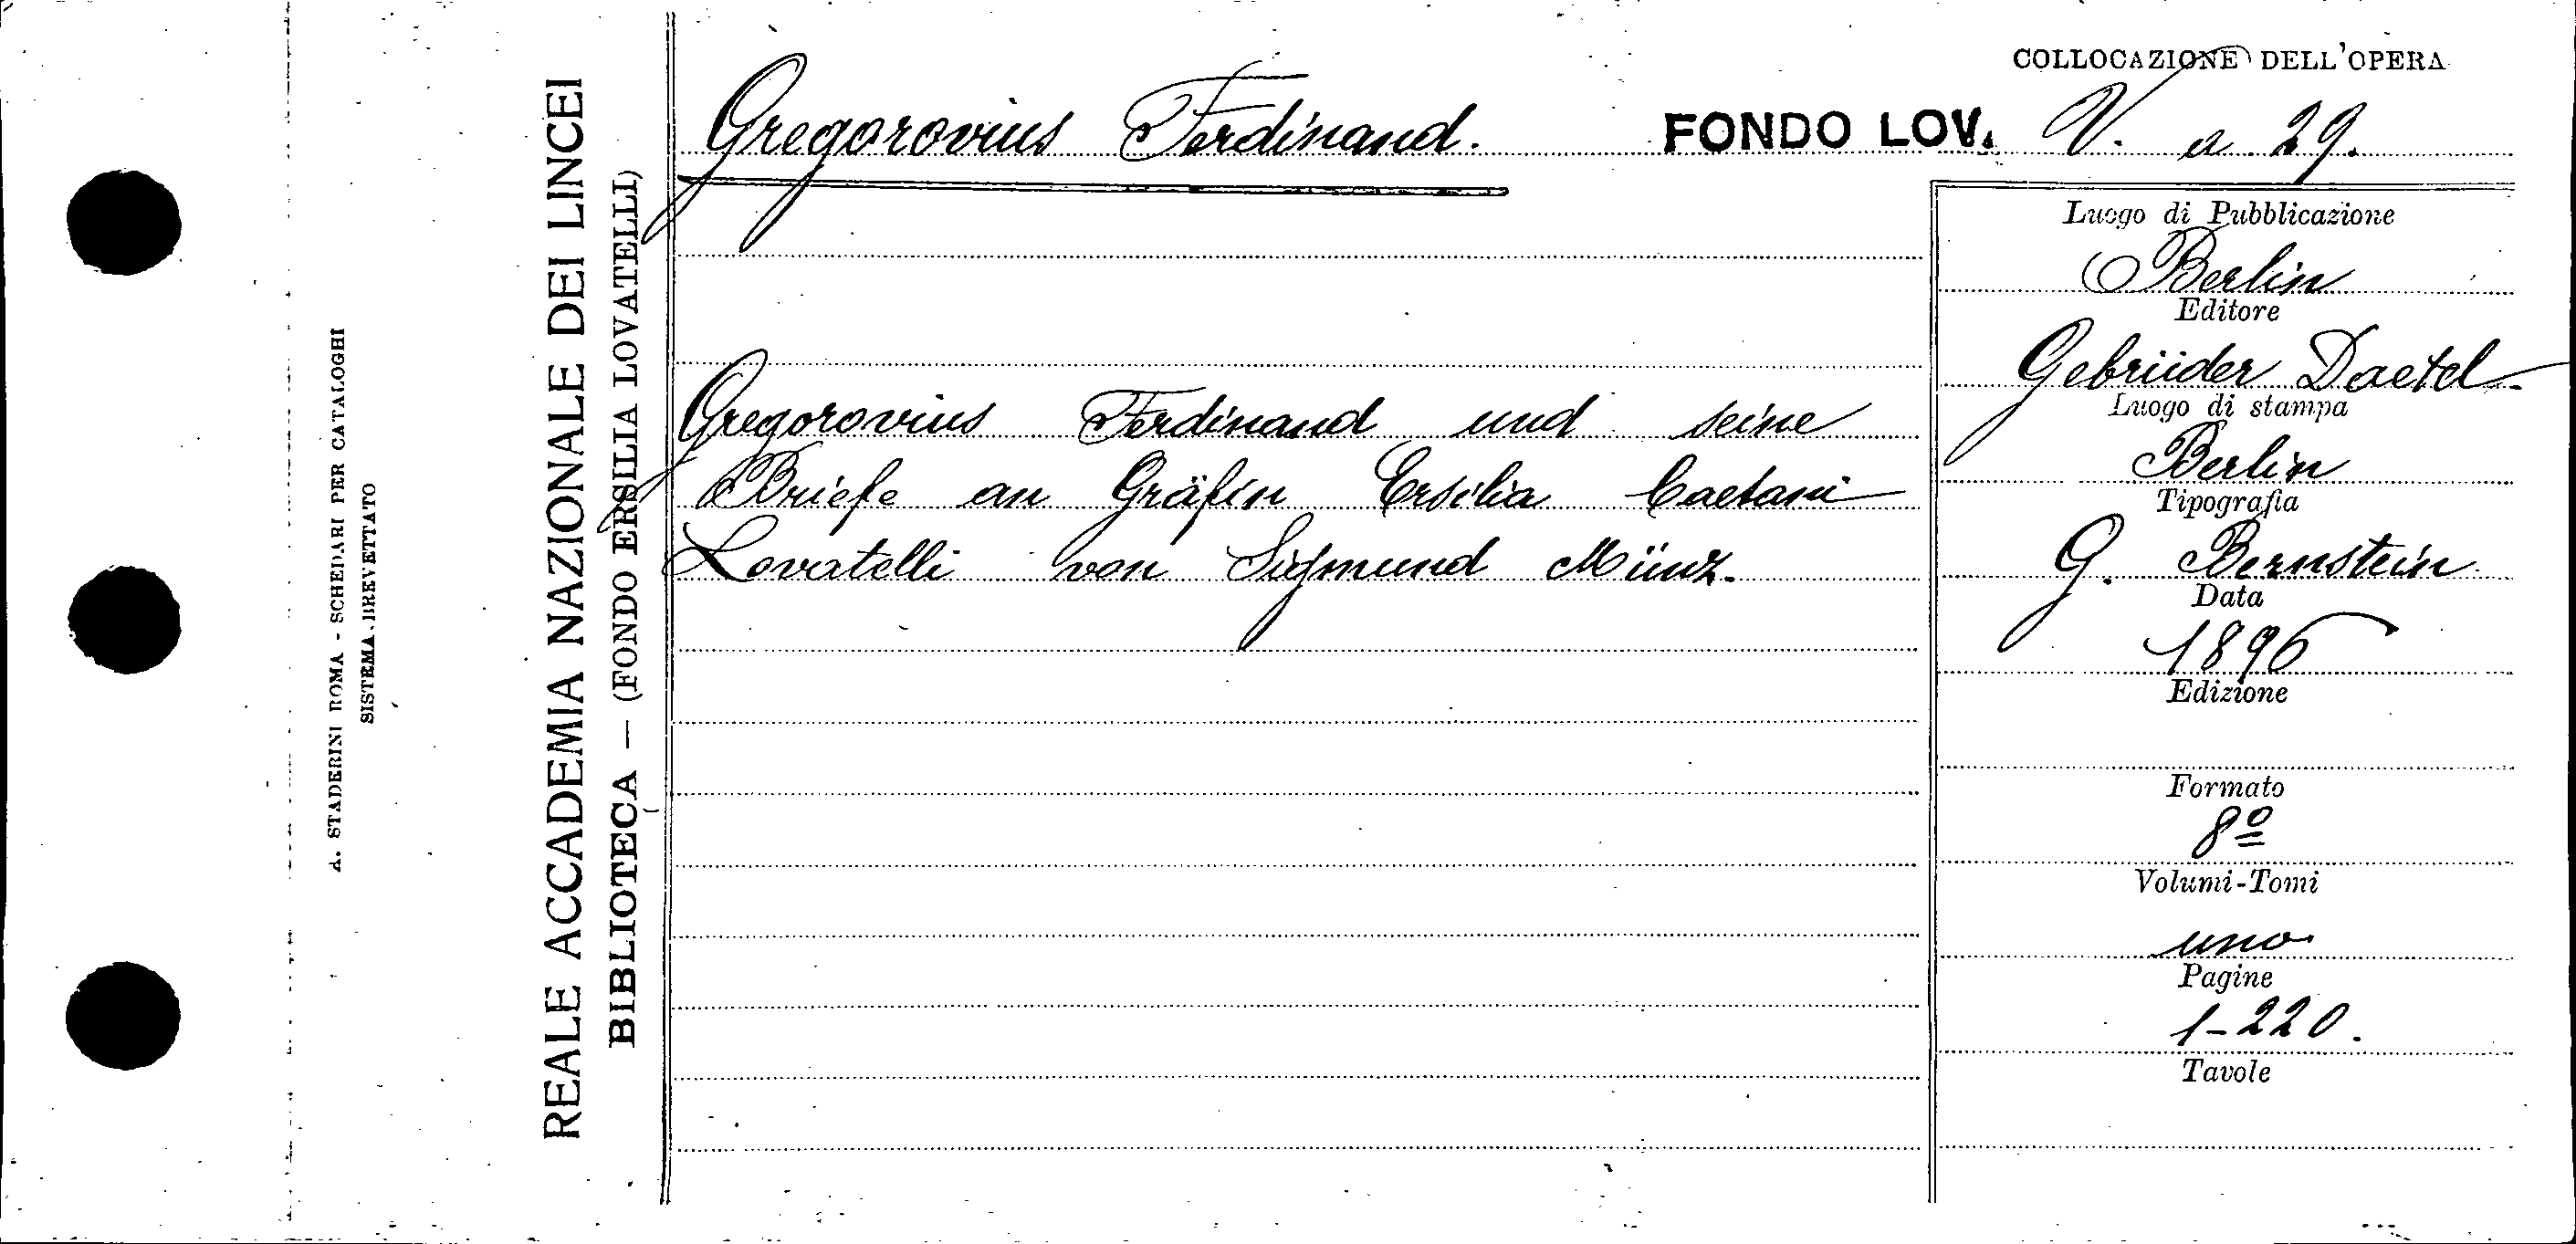 A. STADERINI ROMA - SCHEDARI PER CATALOGHI
SISTEMA BREVETTATO
REALE ACCADEMIA NAZIONALE DEI LINCEI
BIBLIOTECA — (FONDO ERSILIA LOVATELLI)
COLLOCAZIONE DELL'OPERA
Gregorovius Ferdinand. FONDO LOV. V. a 29.
Gregorovius Ferdinand und seine
Briefe an Gräfin Ersilia Caetani
Lovatelli von Sigmund Münz.
Luogo di Pubblicazione
Berlin
Editore
Gebrüder Daetel
Luogo di stampa
Berlin
Tipografia
G. Bernstein
Data
1896
Edizione
Formato
8º
Volumi-Tomi
uno
Pagine
1-220.
Tavole